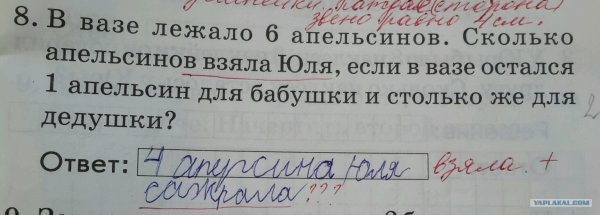 звено равно 4 см.
8. В вазе лежало 6 апельсинов. Сколько
апельсинов взяла Юля, если в вазе остался
1 апельсин для бабушки и столько же для
дедушки?
Ответ: 4 апурсина Юля взяла. +
сажрала???
YAPLAKAL.COM